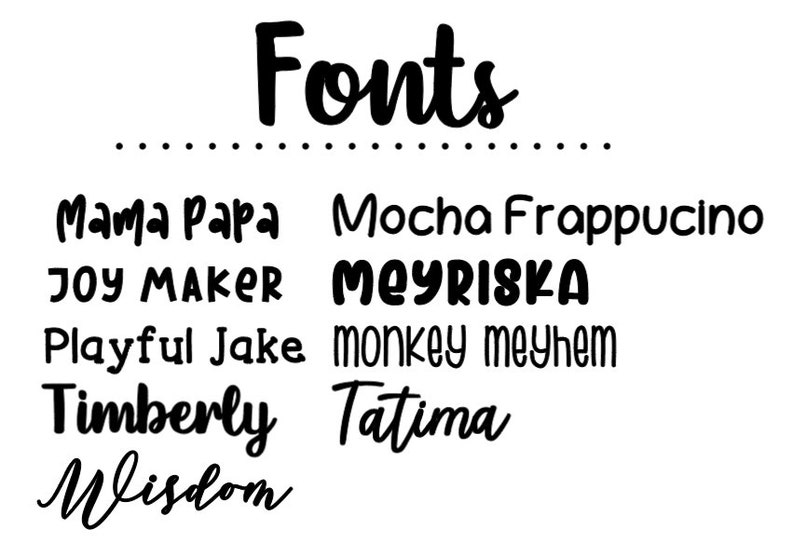 Fonts
Mama Papa
Joy Maker
Playful Jake
Timberly
Wisdom
Mocha Frappucino
MeyRiska
monkey meyhem
Tatima